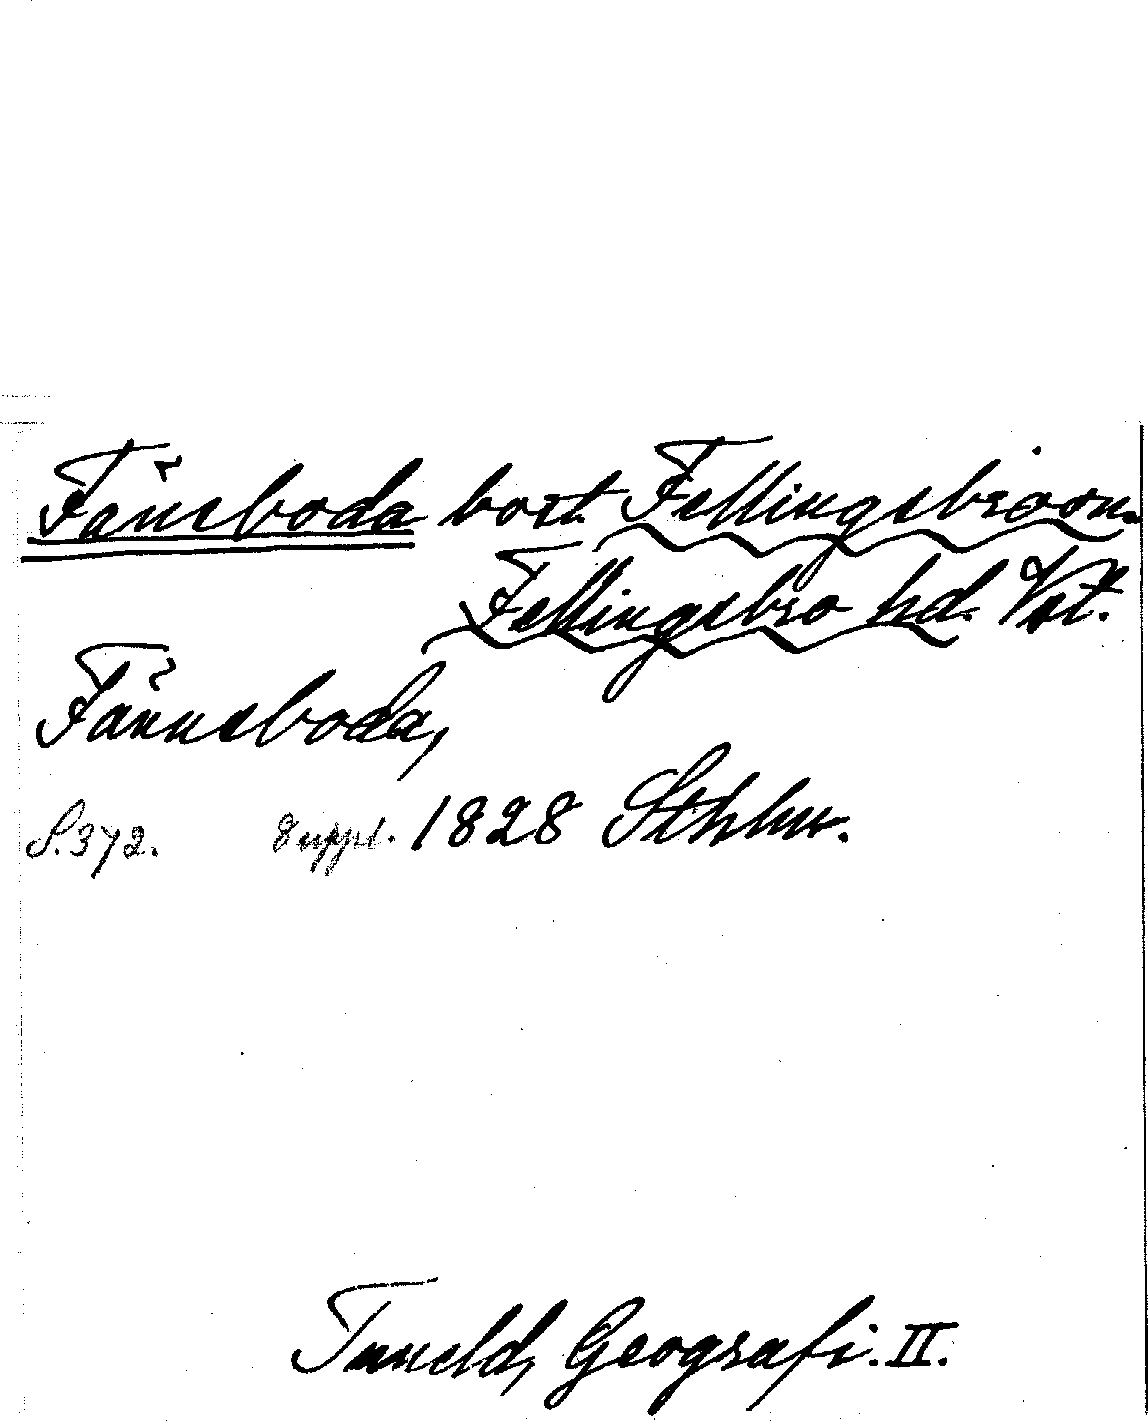 Fånsboda bost. Fellingsbro sn.
Fellingsbro hd. Vst.
Fånnsboda,
S. 372. Suppl. 1828 Sthlm.
Tuneld, Geografi. II.